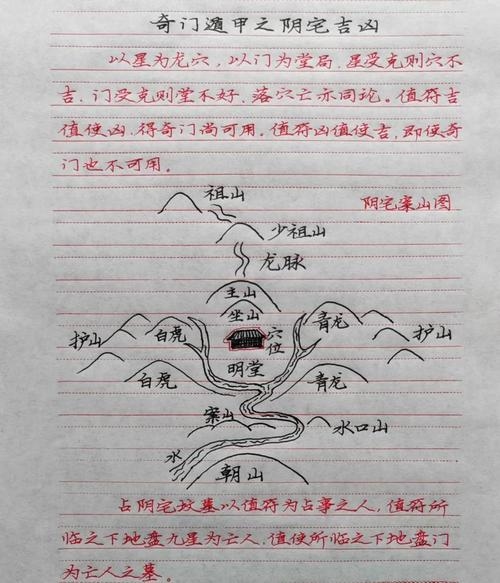 奇门遁甲之阴宅吉凶
以星为龙穴，以门为堂局，星受克则穴不
吉，门受克则堂不好，落穴亡亦同论。值符吉
值使凶，得奇门尚可用。值符凶值使吉，即使奇
门也不可用。
祖山
阴宅案山图
少祖山
龙脉
主山
坐山
青龙
护山
白虎
穴位
护山
明堂
白虎
青龙
案山
水口山
水
朝山
占阴宅坟墓以值符为占事之人，值符所
临之下地盘九星为亡人，值使所临之下地盘门
为亡人之墓。